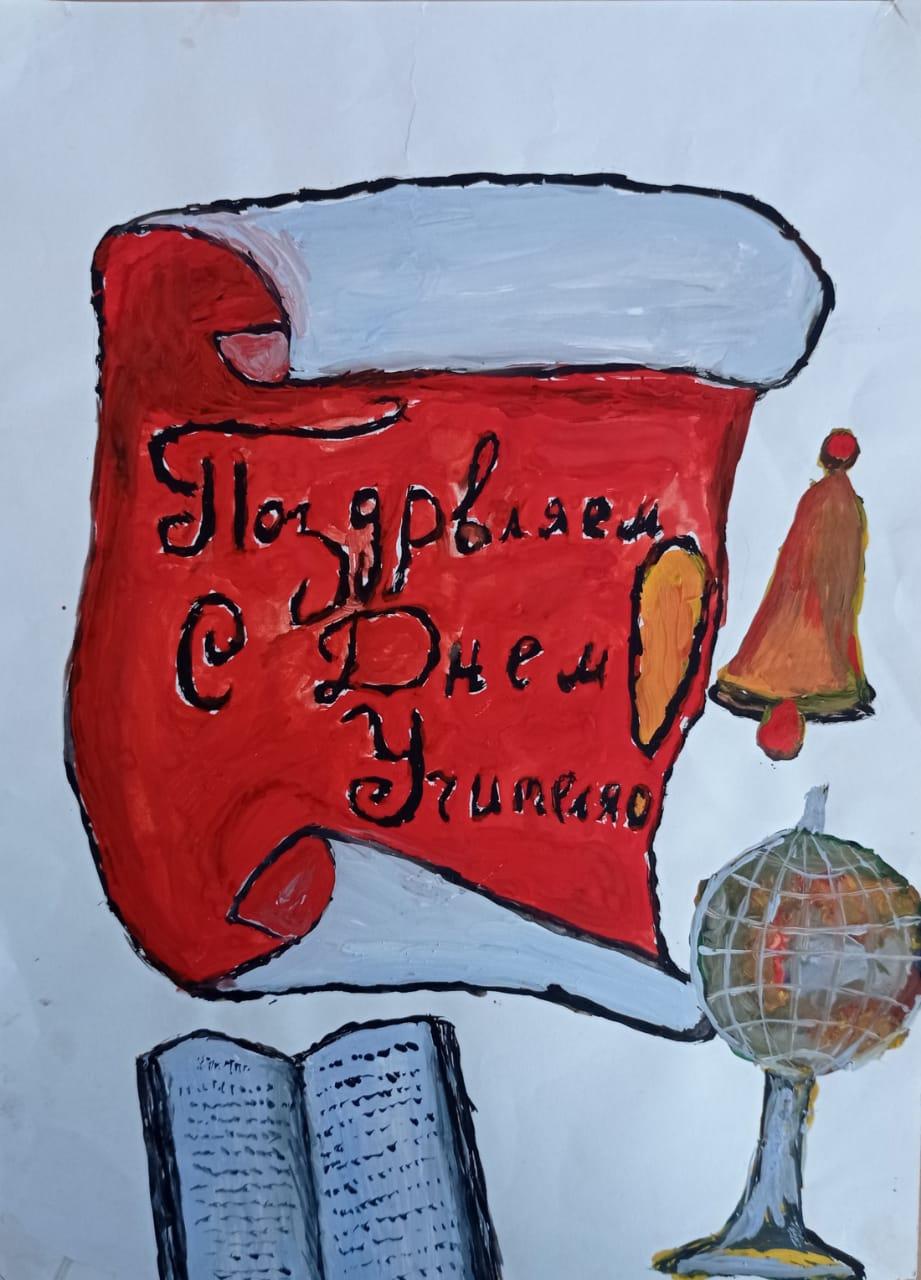 Поздрвляем
С Днем
Учителя!